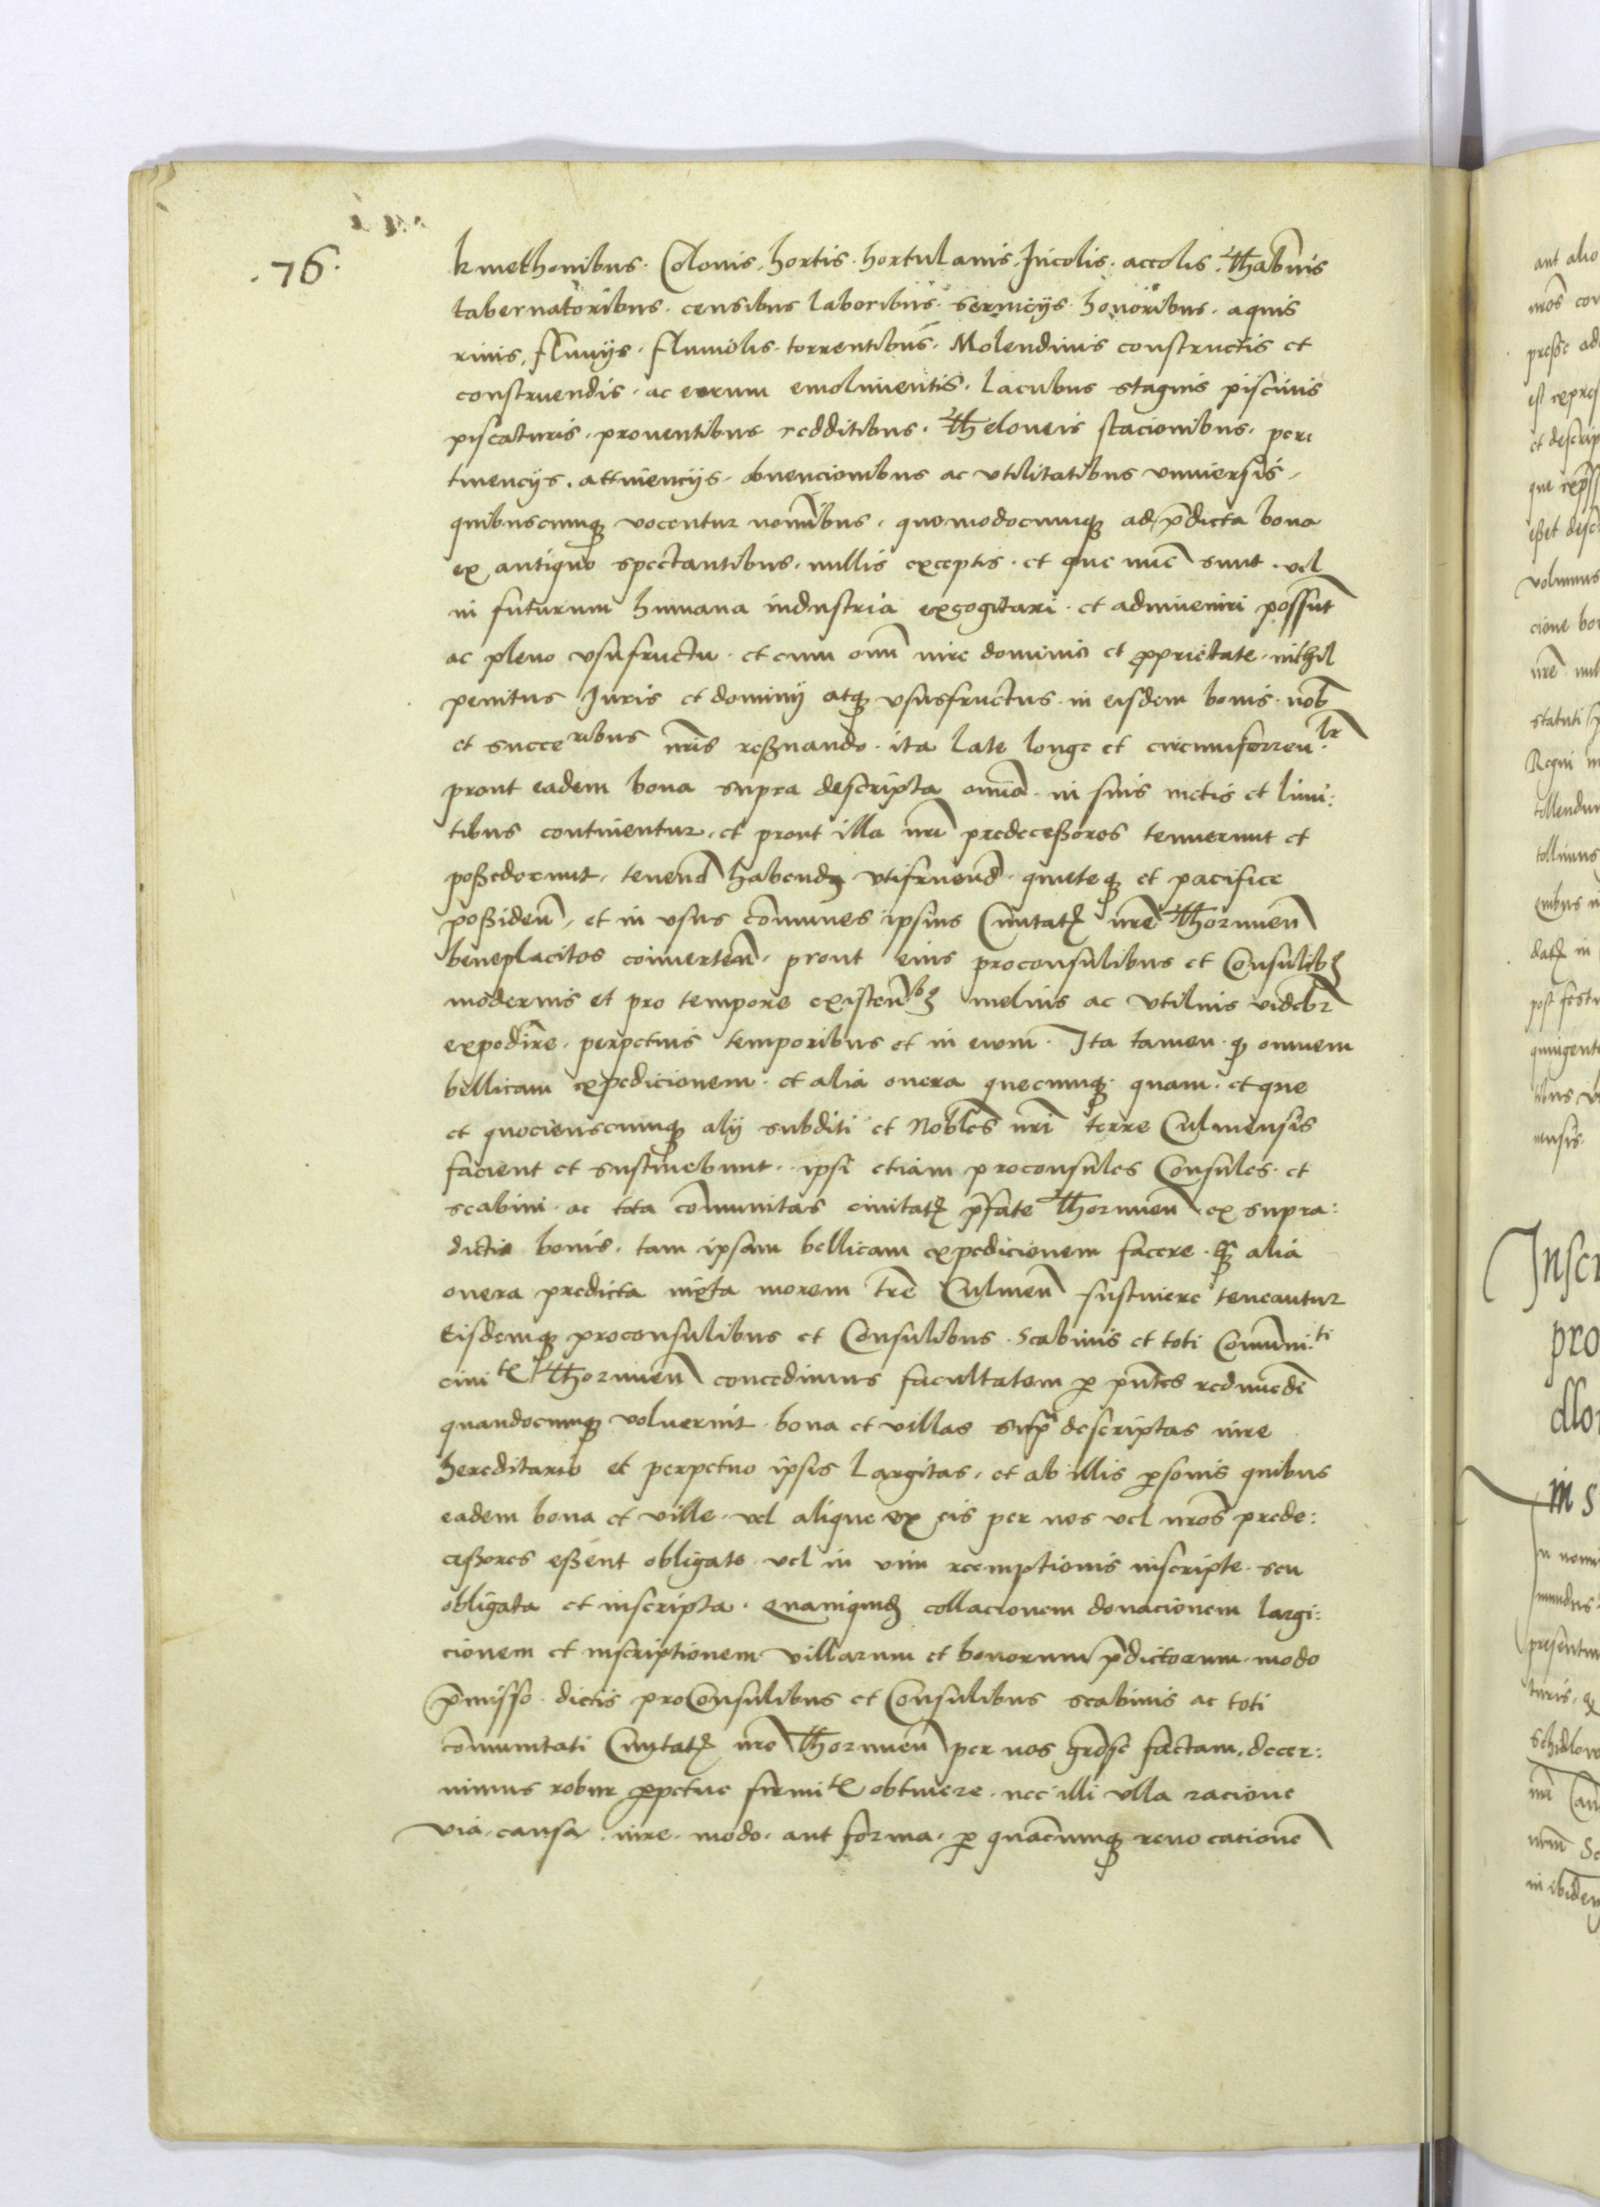 .76.
kmethonibus. Colonis, hortis. hortulanis. Incolis. accolis. Thabn̄is
tabernatoribus. censibus laboribus. seruicijs. honoribus. aquis
riuis, fluuijs. fluuiolis. torrentibus. Molendinis constructis et
construendis. ac eorum emolimentis. lacubus stagnis piscinis
piscaturis. prouentibus redditibus. Theloneis stacionibus. peri
tinencijs, attinencijs. obuencionibus ac vtilitatibus vniuersis.
quibuscumq vocentur nomībus. quomodocumq ad p̄dicta bona
ex antiquo spectantibus. nullis exceptis. et que nūc sunt. vel
in futurum humana industria excogitari. et adinueniri possūt
ac pleno vsufructu. et cum omī iure dominio et pprietate. nichil
penitus Iuris et dominij atq vsusfructus. in eisdem bonis. nob̄
et succeribus nr̄is reßuando. ita late longe et circumferren.lr
prout eadem bona supra descripta omīa. in suis metis et limi:
tibus continentur, et prout illa nr̄i predeceßores tenuerunt et
poßederunt. tenend̄ habend vtifruend̄. quieteq et pacifice
poßiden̄, et in vsus com̄unes ipsius Ciuitat nr̄e Thorunen̄
beneplacitos conuerten̄. prout eius proconsulibus et Consulib
modernis et pro tempore existen̄b melius ac vtilius videb̄r
expedīre. perpetuis temporibus et in euom̄. Ita tamen. q omnem
bellicam expedicionem. et alia onera quecumq. quam. et que
et quocienscumq alij subditi et Nobl̄es nr̄i terre Culmensis
facient et sustinebunt. ipsi etiam proconsules Consules. et
scabini. ac tota com̄unitas ciuitat p̄fate Thorunen̄ ex supra:
dictis bonis. tam ipsam bellicam expedicionem facere. q̄ alia
onera predicta iuxta morem tr̄e Culmen̄ sustinere teneantur
Eisdemq proconsulibus et Consulibus. Scabinis et toti Com̄uni.ti
ciuit Thorunen̄ concedimus facultatem p pn̄tes redimēdi
quandocumq voluerint. bona et villas sup̄ descriptas iure
hereditario et perpetuo ipsis largitas, et ab illis psonis quibus
eadem bona et ville. vel alique ex eis per nos vel nr̄os prede:
ceßores eßent obligate vel in vim reemptionis inscripte. seu
obligata et inscripta. quamquid collacionem donacionem largi:
cionem et inscriptionem villarum et bonorum p̄dictorum. modo
p̄misso. dictis proConsulibus et Consulibus scabinis ac toti
com̄unitati Ciuitat nr̄e Thorunen̄ per nos gr̄ose factam. decer:
nimus robur ppetue firmit obtinere. nec illi vlla racione
via. causa. iure. modo. aut forma. p quācumq reuocationē